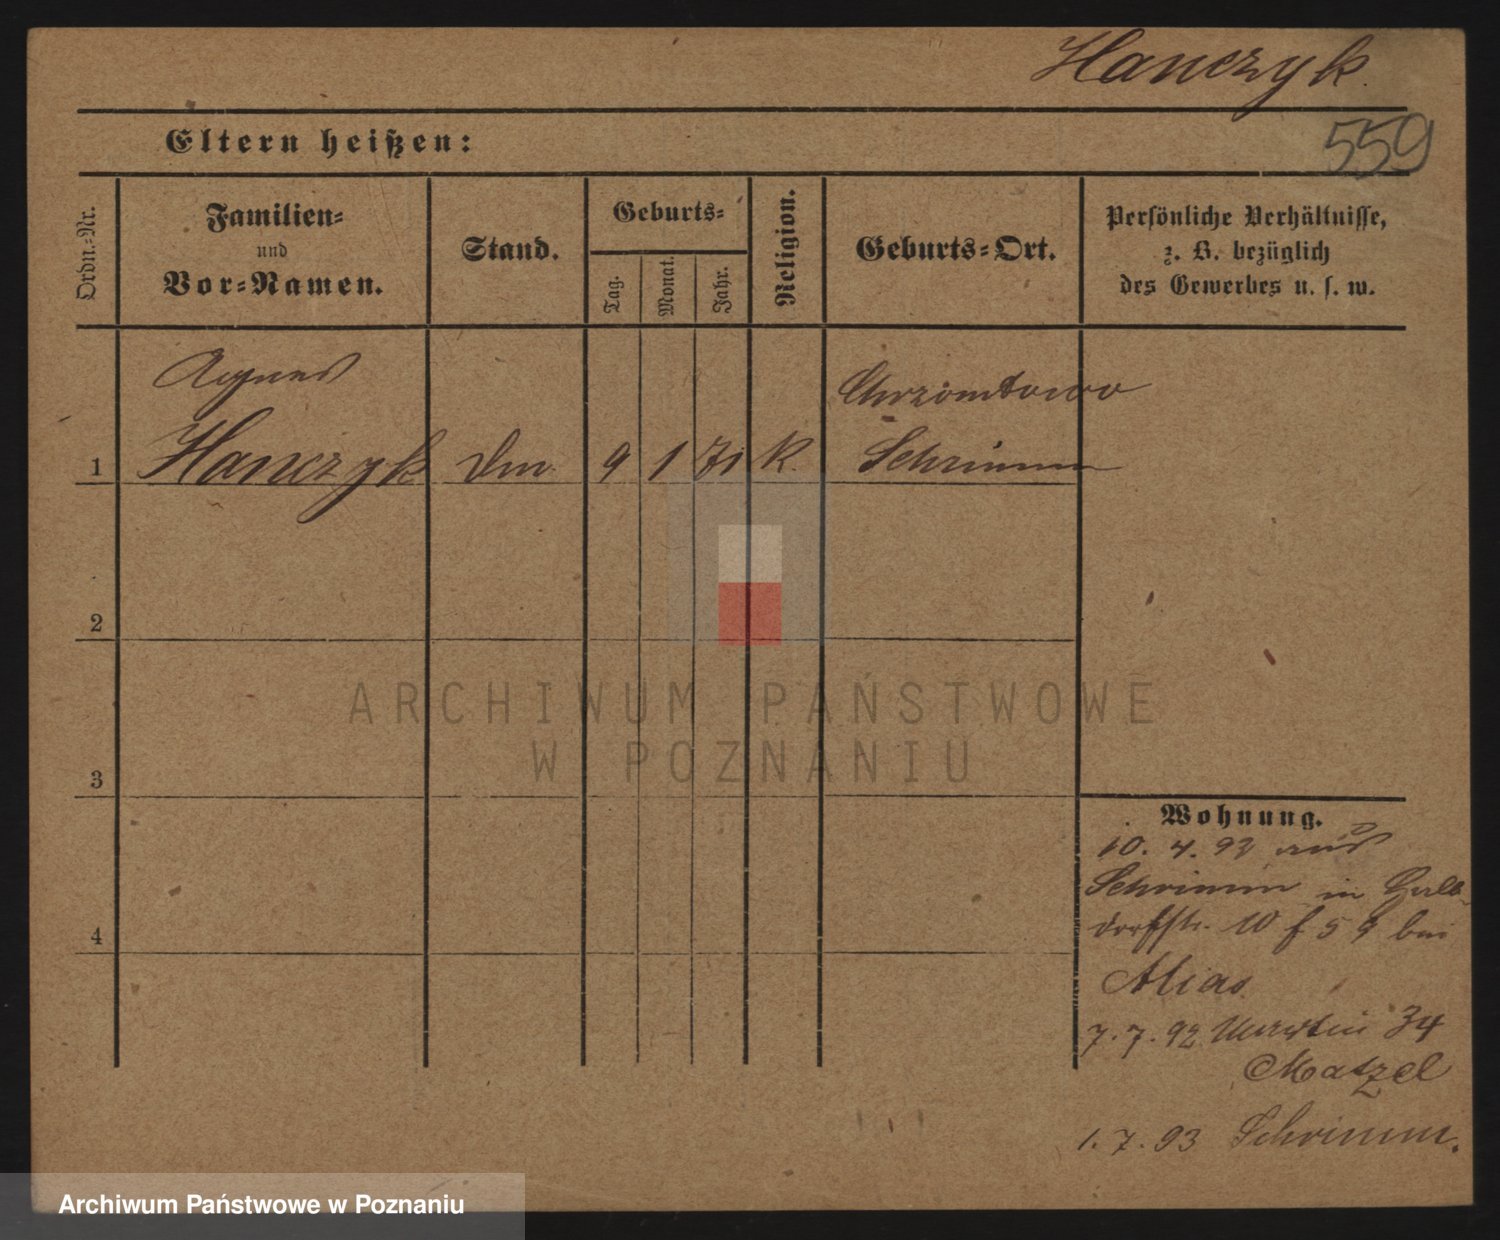 Hanczyk.
559
Eltern heißen:
Ordn.-Nr.
Familien-
und
Vor-Namen.
Stand.
Geburts-
Tag.
Monat.
Jahr.
Religion.
Geburts-Ort.
Persönliche Verhältnisse,
z. B. bezüglich
des Gewerbes u. s. w.
Agnes
Hanczyk
1
9
1
71
K.
Schrimm
2
3
4
Wohnung.
10. 4. 92 aus
Schrimm in Halb-
dorfstr. 10 bei
7. 7. 92 34
Matzel
1. 7. 93 Schrimm.
ARCHIWUM PAŃSTWOWE
W POZNANIU
Archiwum Państwowe w Poznaniu